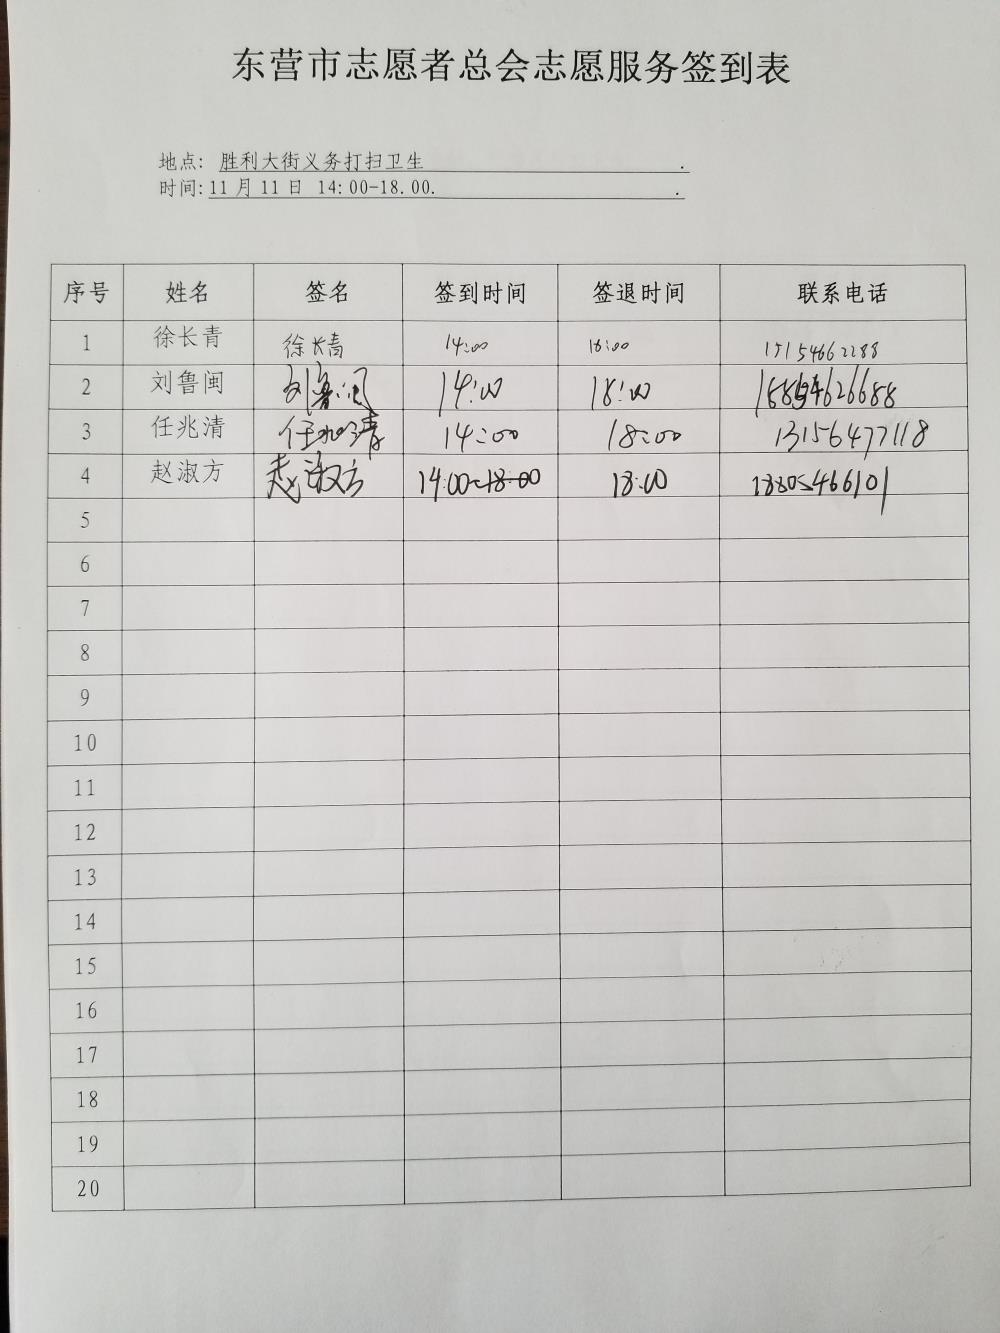 东营市志愿者总会志愿服务签到表
地点: 胜利大街义务打扫卫生 .
时间: 11月11日 14:00-18.00. .
序号 姓名 签名 签到时间 签退时间 联系电话
1 徐长青 徐长青 14:00 18:00 15154662288
2 刘鲁闽 刘鲁闽 14:00 18:00
3 任兆清 任兆清 14:00 18:00 13156477118
4 赵淑方 赵淑方 14:00-18:00 18:00 18805466101
5
6
7
8
9
10
11
12
13
14
15
16
17
18
19
20